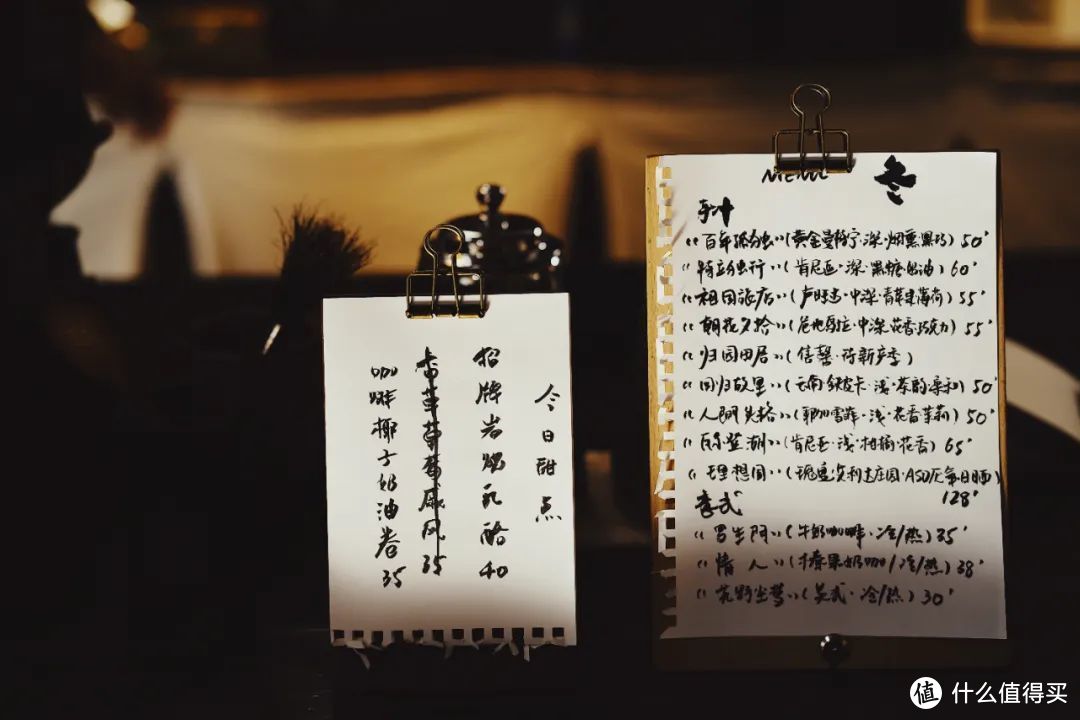 今日甜点
招牌岩烧乳酪 40
35
咖啡椰子奶油卷 35
MENU 冬
手冲
《百年孤独》(黄金曼特宁·深·烟熏黑巧) 50'
《特立独行》(肯尼亚·深·黑糖奶油) 60'
《祖国旅店》(卢旺达·中深·青草薄荷) 55'
《朝花夕拾》(危地马拉·中深·花香巧克力) 55'
《归园田居》(信馨·待新产季)
《回归故里》(云南铁皮卡·浅·茶韵柔和) 50'
《人间失格》(耶加雪菲·浅·花香茉莉) 50'
(肯尼亚·浅·柑橘·花香) 65'
《理想国》(瑰夏·庄园·ASD厌氧日晒) 128'
意式
《罗生门》(牛奶咖啡·冷/热) 35'
《情人》(榛果奶咖/冷/热) 38'
(美式·冷/热) 30'
值 什么值得买